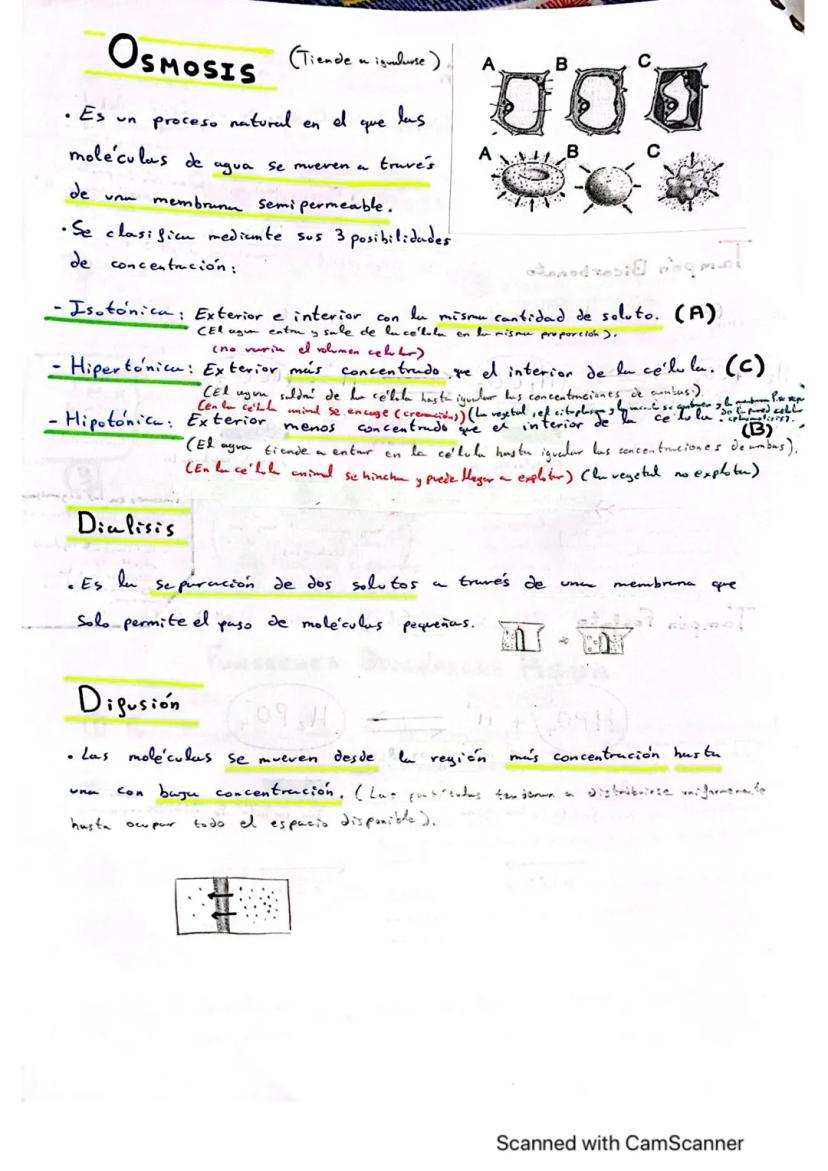 OSMOSIS (Tiende a igualarse)
A B C
A B C
• Es un proceso natural en el que las
moléculas de agua se mueven a través
de una membrana semipermeable.
• Se clasifica mediante sus 3 posibilidades
de concentración:
- Isotónica: Exterior e interior con la misma cantidad de soluto. (A)
(El agua entra y sale de la célula en la misma proporción).
(no varía el volumen celular)
- Hipertónica: Exterior más concentrado que el interior de la célula. (C)
(El agua saldrá de la célula hasta igualar las concentraciones de ambas).
(en la célula animal se encoge (crenación)) (La vegetal, el citoplasma y la
de la pared celular
(plasmolisis).
- Hipotónica: Exterior menos concentrado que el interior de la célula. (B)
(El agua tiende a entrar en la célula hasta igualar las concentraciones de ambas).
(En la célula animal se hincha y puede llegar a explotar) (la vegetal no explota)
Dialisis
• Es la separación de dos solutos a través de una membrana que
solo permite el paso de moléculas pequeñas.
Difusión
• Las moléculas se mueven desde la región más concentración hasta
una con baja concentración. (Las partículas tenderan a distribuirse uniformemente
hasta ocupar todo el espacio disponible).
Tampón Bicarbonato
Tampón Fosfato
HPO₄ + H H₂PO₄
Scanned with CamScanner